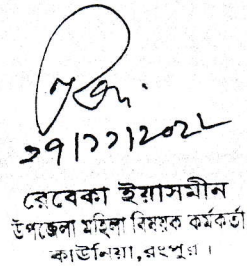 ২৭/১১/২০২২
রেবেকা ইয়াসমীন
উপজেলা মহিলা বিষয়ক কর্মকর্তা
কাউনিয়া, রংপুর।